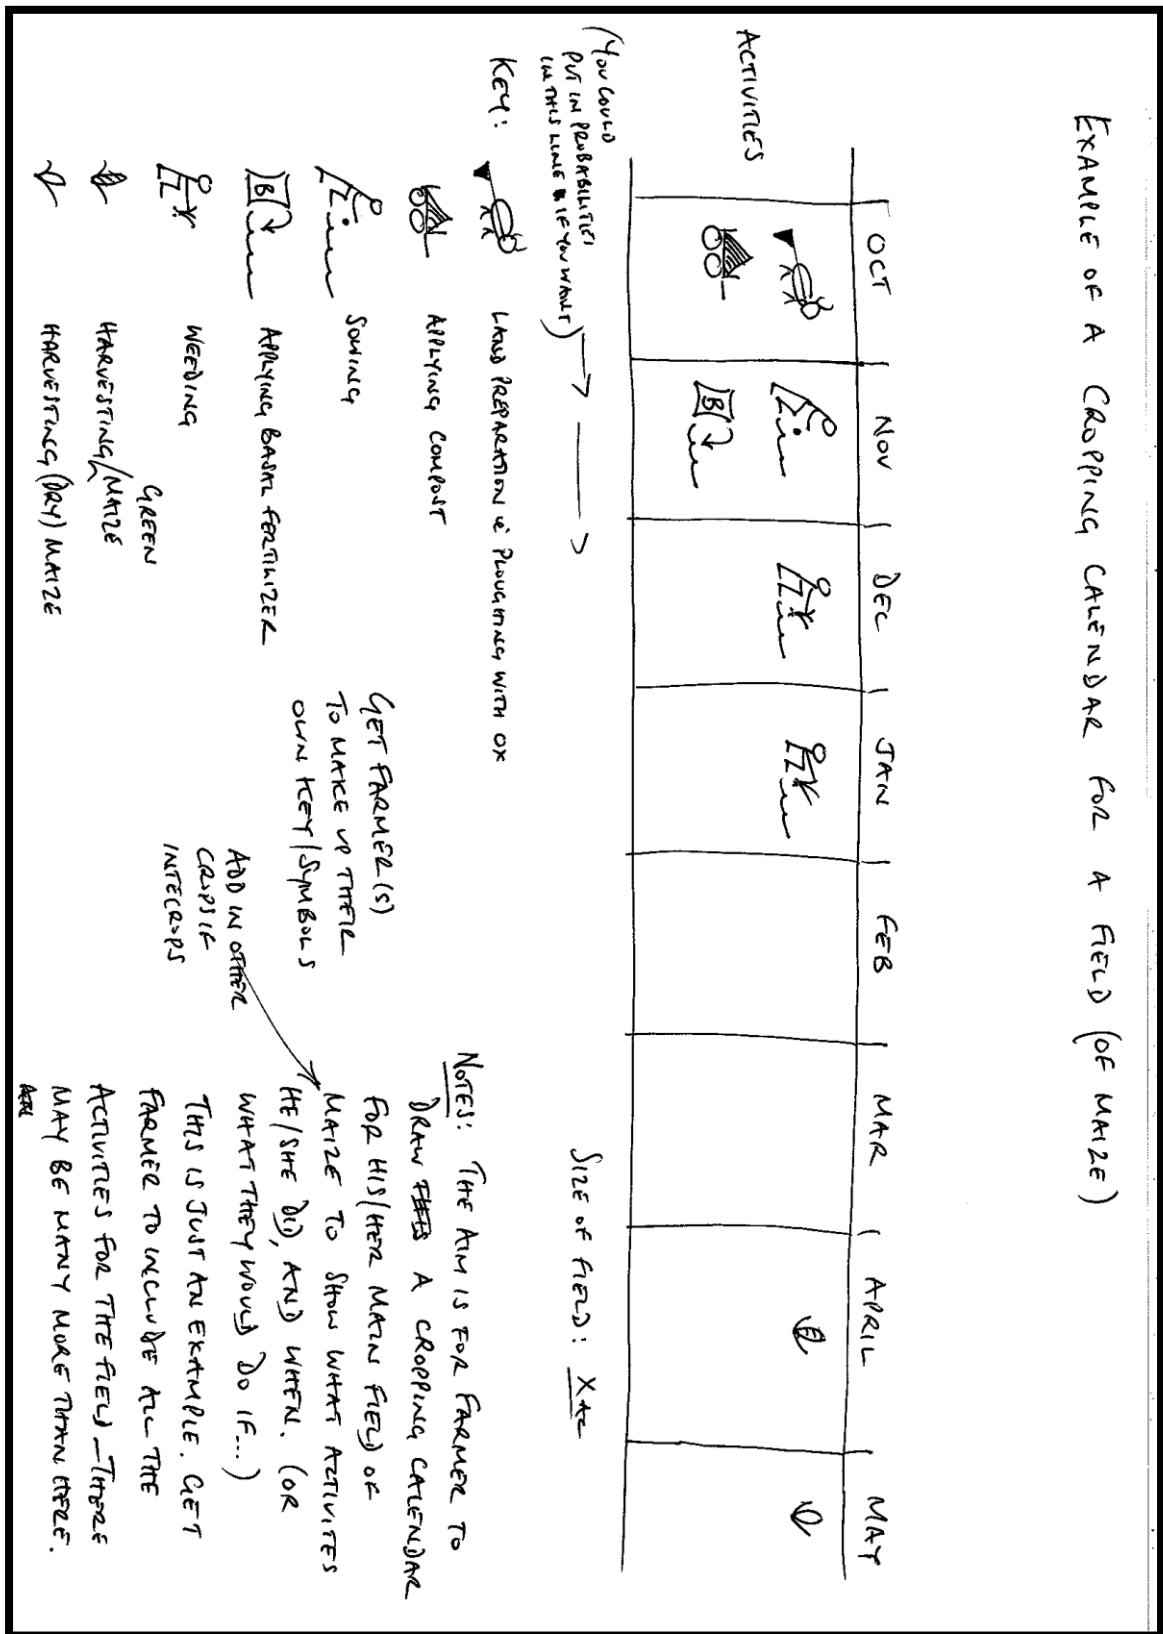 EXAMPLE OF A CROPPING CALENDAR FOR A FIELD (OF MAIZE)
OCT NOV DEC JAN FEB MAR APRIL MAY
ACTIVITIES
B
(YOU COULD
PUT IN PROBABILITIES
IN THIS LINE IF YOU WANT)
SIZE OF FIELD: X AC
KEY:
LAND PREPARATION ie PLOUGHING WITH OX
APPLYING COMPOST
SOWING
B APPLYING BASAL FERTILIZER
WEEDING
GREEN
HARVESTING MAIZE
HARVESTING (DRY) MAIZE
GET FARMER(S)
TO MAKE UP THEIR
OWN KEY/SYMBOLS
ADD IN OTHER
CROPS IF
INTECROPS
NOTES: THE AIM IS FOR FARMER TO
DRAW THIS A CROPPING CALENDAR
FOR HIS/HER MAIN FIELD OF
MAIZE TO SHOW WHAT ACTIVITES
HE/SHE DID, AND WHEN. (OR
WHAT THEY WOULD DO IF...)
THIS IS JUST AN EXAMPLE. GET
FARMER TO INCLUDE ALL THE
ACTIVITIES FOR THE FIELD - THERE
MAY BE MANY MORE THAN HERE.